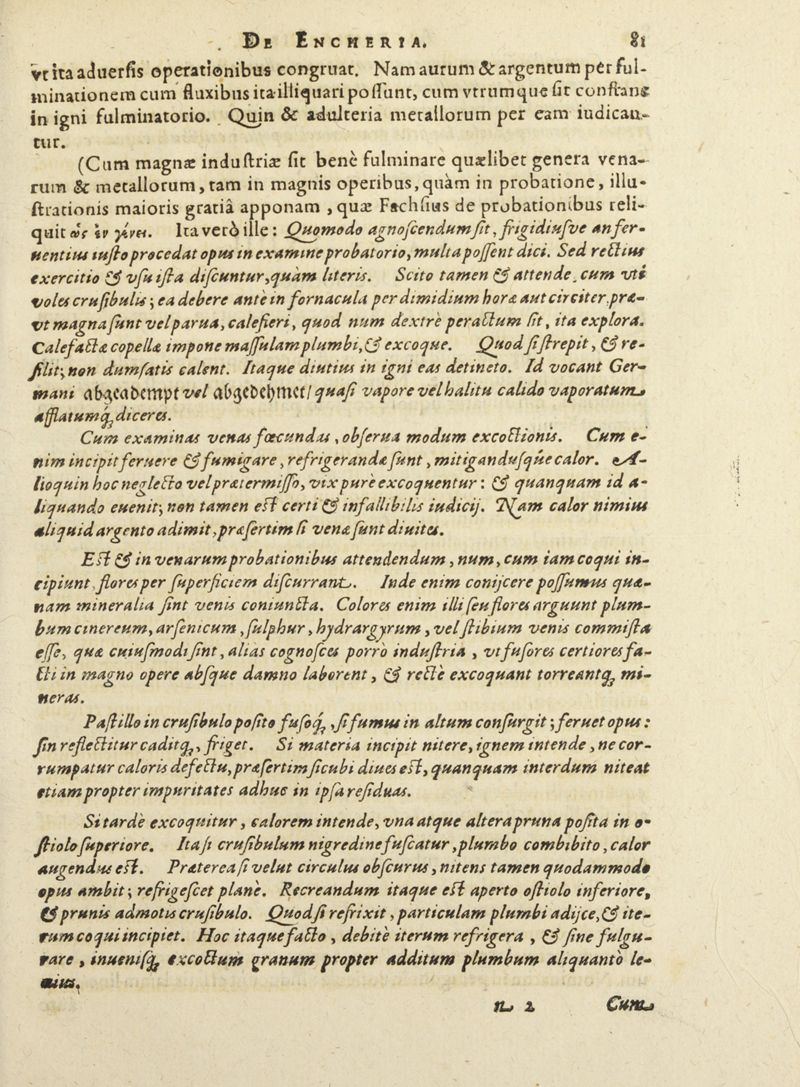 DE ENCHERIA. 81
vt ita aduersis operationibus congruat. Nam aurum & argentum per ful-
minationem cum fluxibus ita illiquari possunt, cum vtrumque sit constans
in igni fulminatorio. Quin & adulteria metallorum per eam iudican-
tur.
(Cum magnæ industriæ sit benè fulminare quælibet genera vena-
rum & metallorum, tam in magnis operibus, quàm in probatione, illu-
strationis maioris gratiâ apponam, quæ Fachsius de probationibus reli-
quit ὡς ἐν γένει. Ita verò ille: Quomodo agnoscendum sit, frigidiusve an fer-
uentius iusto procedat opus in examine probatorio, multa possent dici. Sed rectius
exercitio & vsu ista discuntur, quàm literis. Scito tamen & attende, cum vti
voles crusibulis; ea debere antè in fornacula per dimidium horæ aut circiter, præ-
vt magna sunt vel parua, calefieri, quod num dextrè peractum sit, ita explora.
Calefactæ copellæ impone massulam plumbi, & excoque. Quod si strepit, & re-
silit; non dum satis calent. Itaque diutius in igni eas detineto. Id vocant Ger-
mani abgeadempt vel abgedehmet/ quasi vapore vel halitu calido vaporatum
afflatumq; diceres.
Cum examinas venas fœcundas, obserua modum excoctionis. Cum e-
nim incipit feruere & fumigare, refrigerandæ sunt, mitigandusque calor. A-
lioquin hoc neglecto vel prætermisso, vix purè excoquentur: & quanquam id a-
liquando euenit; non tamen est certi & infallibilis iudicij. Nam calor nimius
aliquid argento adimit, præsertim si venæ sunt diuites.
Est & in venarum probationibus attendendum, num, cum iam coqui in-
cipiunt, flores per superficiem discurrant. Inde enim conijcere possumus quæ-
nam mineralia sint venis coniuncta. Colores enim illi seu flores arguunt plum-
bum cinereum, arsenicum, sulphur, hydrargyrum, vel stibium venis commista
esse, quæ cuiusmodi sint, alias cognosces porrò industria, vt fusores certiores fa-
cti in magno opere absque damno laborent, & rectè excoquant torreantq; mi-
neras.
Pastillo in crusibulo posito fusoq;, si fumus in altum consurgit; feruet opus:
sin reflectitur caditq;, friget. Si materia incipit nitere, ignem intende, ne cor-
rumpatur caloris defectu, præsertim sicubi diues est, quanquam interdum niteat
etiam propter impuritates adhuc in ipsa residuas.
Si tardè excoquitur, calorem intende, vna atque altera pruna posita in o-
stiolo superiore. Ita si crusibulum nigredine fuscatur, plumbo combibito, calor
augendus est. Præterea si velut circulus obscurus, nitens tamen quodammodo
opus ambit; refrigescet planè. Recreandum itaque est aperto ostiolo inferiore,
& prunis admotis crusibulo. Quod si refrixit, particulam plumbi adijce, & ite-
rum coqui incipiet. Hoc itaque facto, debitè iterum refrigera, & sine fulgu-
rare, inuenisq; excoctum granum propter additum plumbum aliquantò le-
uius.
n 2 Cum